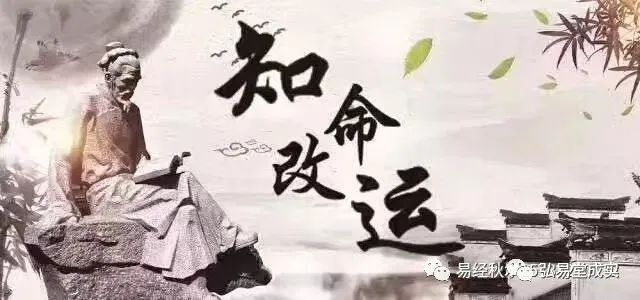 知命
改运
易经秋
弘易堂成